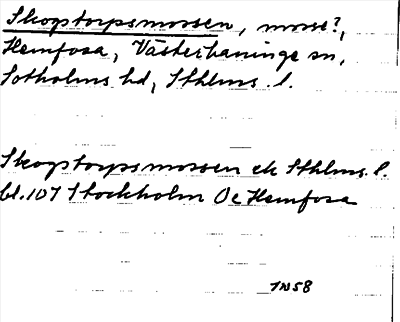 Skogstorpsmossen, mosse?,
Hemfosa, Västerhaninge sn,
Sotholms hd, Sthlms. l.
Skogstorpsmossen ek Sthlms. l.
bl. 107 Stockholm Öe Hemfosa
IN58